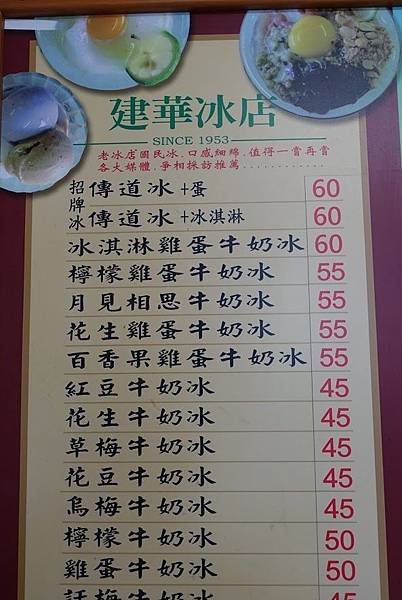 建華冰店
SINCE 1953
老冰店國民冰．口感細綿．值得一嘗再嘗
各大媒體．爭相採訪推薦............
招牌冰 傳道冰+蛋 60
傳道冰+冰淇淋 60
冰淇淋雞蛋牛奶冰 60
檸檬雞蛋牛奶冰 55
月見相思牛奶冰 55
花生雞蛋牛奶冰 55
百香果雞蛋牛奶冰 55
紅豆牛奶冰 45
花生牛奶冰 45
草莓牛奶冰 45
花豆牛奶冰 45
烏梅牛奶冰 45
檸檬牛奶冰 50
雞蛋牛奶冰 50
話梅牛奶冰 45